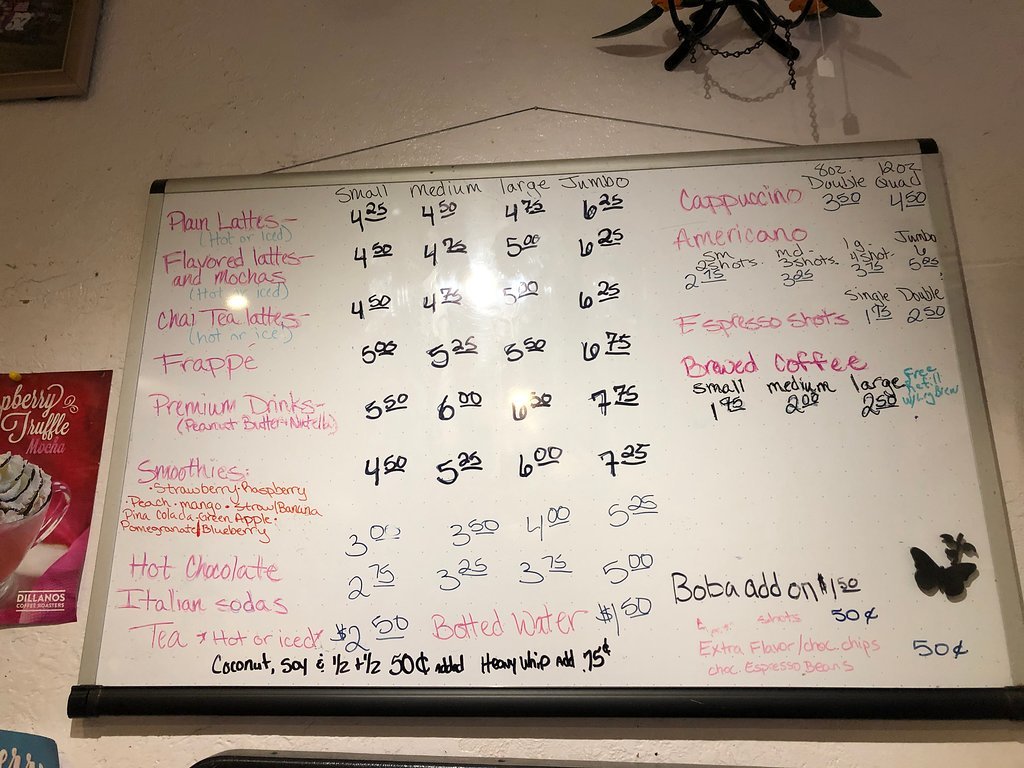 small medium large Jumbo
Plain Lattes- 4.25 4.50 4.75 6.25
(Hot or Iced)
Flavored lattes- 4.50 4.75 5.00 6.25
and mochas
(Hot iced)
Chai Tea lattes- 4.50 4.75 5.00 6.25
(hot or ice)
Frappe 5.00 5.25 5.50 6.75
Premium Drinks- 5.50 6.00 6.50 7.75
(Peanut Butter & Nutella)
Smoothies: 4.50 5.25 6.00 7.25
·Strawberry·Raspberry
·Peach·mango·Straw/Banana
Pina Colada·Green Apple·
Pomegranate/Blueberry
3.00 3.50 4.00 5.25
Hot Chocolate
2.75 3.25 3.75 5.00
Italian sodas
Tea * Hot or iced* $2.50 Botted Water $1.50
Coconut, soy & 1/2 + 1/2 50¢ added Heavy whip add .75¢
8oz. 12oz
Double Quad
Cappuccino 3.50 4.50
Americano
sm md. lg. Jumbo
2shots. 3shots. 4shot. 6
2.75 3.25 3.75 5.25
Single Double
Espresso shots 1.75 2.50
Brewed Coffee
small medium large
1.75 2.00 2.50
Free
Refill
w/Lg Brew
Boba add on $1.50
shots 50¢
Extra Flavor/choc. chips 50¢
choc. Espresso Beans
pberry
Truffle
Mocha
DILLANOS
COFFEE ROASTERS
erry